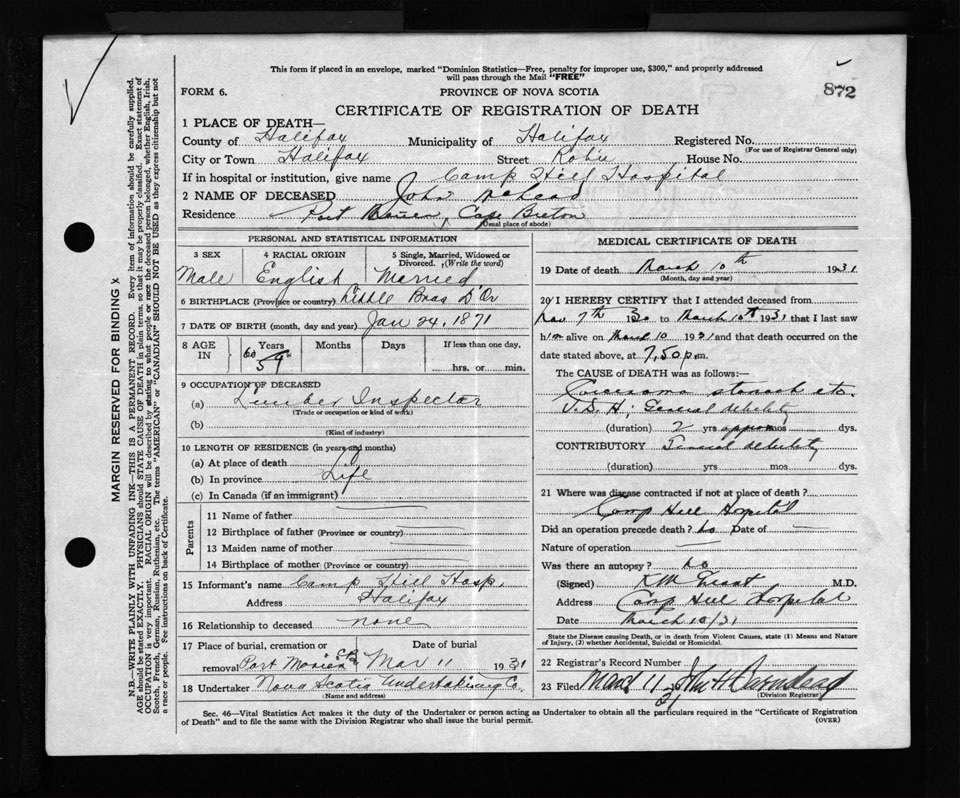 This form if placed in an envelope, marked "Dominion Statistics—Free, penalty for improper use, $300," and properly addressed
will pass through the Mail "FREE"
872
FORM 6.
PROVINCE OF NOVA SCOTIA
CERTIFICATE OF REGISTRATION OF DEATH
1 PLACE OF DEATH—
County of Halifax Municipality of Halifax Registered No.
(For use of Registrar General only)
City or Town Halifax Street Robie House No.
If in hospital or institution, give name Camp Hill Hospital
2 NAME OF DECEASED John
Residence Port Cape Breton
(Usual place of abode)
PERSONAL AND STATISTICAL INFORMATION
3 SEX 4 RACIAL ORIGIN 5 Single, Married, Widowed or
Divorced. (Write the word)
Male English Married
6 BIRTHPLACE (Province or country) Little Bras D'Or
7 DATE OF BIRTH (month, day and year) Jan 24, 1871
8 AGE IN Years Months Days If less than one day.
60 59
hrs. or min.
9 OCCUPATION OF DECEASED
(a) Lumber Inspector
(Trade or occupation or kind of work)
(b)
(Kind of industry)
10 LENGTH OF RESIDENCE (in years and months)
(a) At place of death
(b) In province Life
(c) In Canada (if an immigrant)
Parents
11 Name of father
12 Birthplace of father (Province or country)
13 Maiden name of mother
14 Birthplace of mother (Province or country)
15 Informant's name Camp Hill Hosp
Address Halifax
16 Relationship to deceased none
17 Place of burial, cremation or Date of burial
removal Port Morien C.B. Mar 11 1931
18 Undertaker Nova Scotia Undertaking Co.
(Name and address)
MEDICAL CERTIFICATE OF DEATH
19 Date of death March 10th 1931
(Month, day and year)
20 I HEREBY CERTIFY that I attended deceased from
Nov 7th 30 to March 10th 1931 that I last saw
him alive on March 10 1931 and that death occurred on the
date stated above, at 7,50 p.m.
The CAUSE of DEATH was as follows:—
stomach etc.
V.D.H; General debility
(duration) 2 yrs mos dys.
CONTRIBUTORY debility
(duration) yrs mos dys.
21 Where was disease contracted if not at place of death?
Camp Hill Hospital
Did an operation precede death? no Date of
Nature of operation
Was there an autopsy? no
(Signed) K M Grant M.D.
Address Camp Hill Hospital
Date March 10/31
State the Disease causing Death, or in death from Violent Causes, state (1) Means and Nature
of Injury, (2) whether Accidental, Suicidal or Homicidal.
22 Registrar's Record Number
23 Filed March 11
(Division Registrar)
Sec. 46—Vital Statistics Act makes it the duty of the Undertaker or person acting as Undertaker to obtain all the particulars required in the "Certificate of Registration
of Death" and to file the same with the Division Registrar who shall issue the burial permit.
(OVER)
MARGIN RESERVED FOR BINDING
N.B.—WRITE PLAINLY WITH UNFADING INK—THIS IS A PERMANENT RECORD. Every item of information should be carefully supplied.
AGE should be stated EXACTLY. PHYSICIANS should STATE CAUSE OF DEATH in plain terms, so that it may be properly classified. Exact statement of
OCCUPATION is very important. RACIAL ORIGIN will be described by stating to what people or race the deceased person belonged, whether English, Irish,
Scotch, French, German, Russian, Ruthenian, etc. The terms "AMERICAN" or "CANADIAN" SHOULD NOT BE USED as they express citizenship but not
a race or people. Fee instructions on back of Certificate.